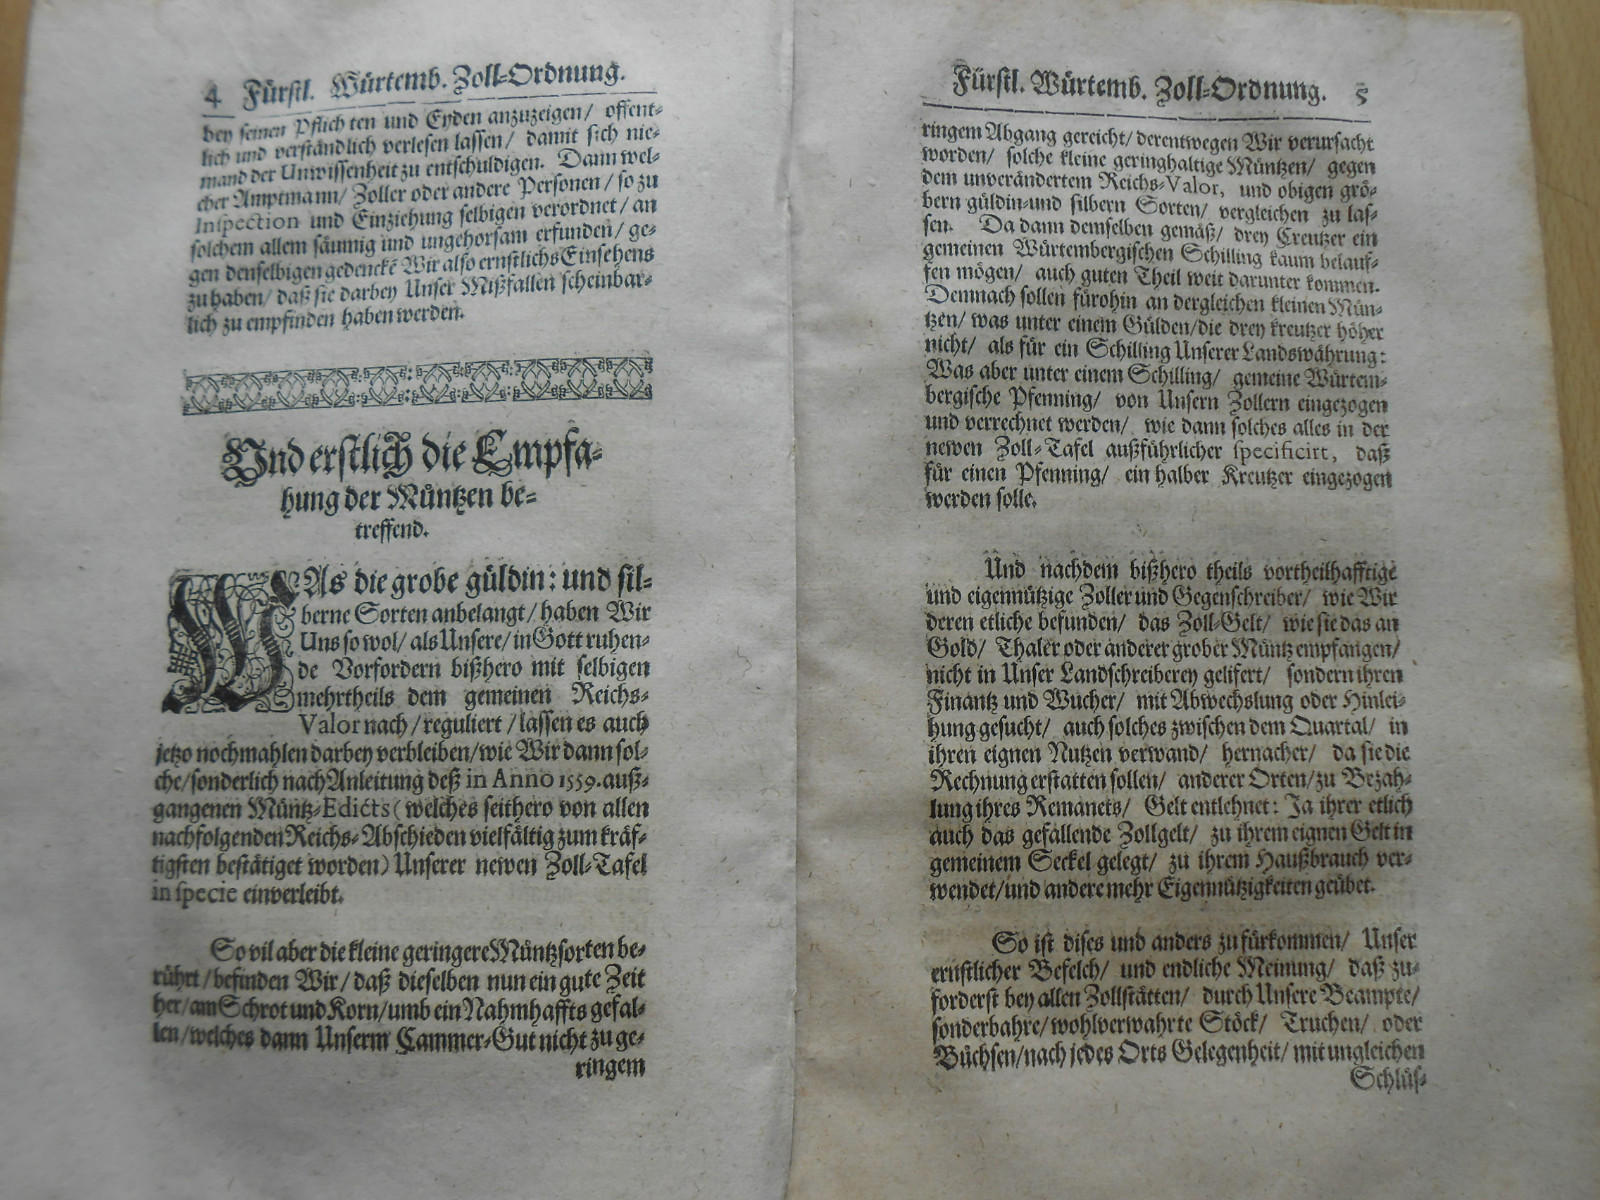 4 Fürstl. Würtemb. Zoll-Ordnung.
bey seinen Pflichten und Eyden anzuzeigen/ offent-
lich und verständlich verlesen lassen/ damit sich nie-
mand der Unwissenheit zu entschuldigen. Dann wel-
cher Amptmann/ Zoller oder andere Personen/ so zu
Inspection und Einziehung selbigen verordnet/ an
solchem allem säumig und ungehorsam erfunden/ ge-
gen denselbigen gedenckē Wir also ernstlichs Einsehens
zu haben/ daß sie darbey Unser Mißfallen scheinbar-
lich zu empfinden haben werden.
Und erstlich die Empfa-
hung der Müntzen be-
treffend.
WAs die grobe güldin: und sil-
berne Sorten anbelangt/ haben Wir
Uns so wol/ als Unsere/ in Gott ruhen-
de Vorfordern bißhero mit selbigen
mehrtheils dem gemeinen Reichs-
Valor nach/ reguliert/ lassen es auch
jetzo nochmahlen darbey verbleiben/ wie Wir dann sol-
che/ sonderlich nach Anleitung deß in Anno 1559. auß-
gangenen Müntz-Edicts (welches seithero von allen
nachfolgenden Reichs-Abschieden vielfältig zum kräf-
tigsten bestätiget worden) Unserer newen Zoll-Tafel
in specie einverleibt.
So vil aber die kleine geringere Müntzsorten be-
rührt/ befinden Wir/ daß dieselben nun ein gute Zeit
her/ am Schrot und Korn/ umb ein Nahmhaffts gefal-
len/ welches dann Unserm Cammer-Gut nicht zu ge-
ringem
Fürstl. Würtemb. Zoll-Ordnung. 5
ringem Abgang gereicht/ derentwegen Wir verursacht
worden/ solche kleine geringhaltige Müntzen/ gegen
dem unverändertem Reichs-Valor, und obigen grö-
bern güldin-und silbern Sorten/ vergleichen zu las-
sen. Da dann demselben gemäß/ drey Creutzer ein
gemeinen Würtembergischen Schilling kaum belauf-
fen mögen/ auch guten Theil weit darunter kommen.
Demnach sollen fürohin an dergleichen kleinen Mün-
tzen/ was unter einem Gülden/ die drey kreutzer höher
nicht/ als für ein Schilling Unserer Landswährung:
Was aber unter einem Schilling/ gemeine Würtem-
bergische Pfenning/ von Unsern Zollern eingezogen
und verrechnet werden/ wie dann solches alles in der
newen Zoll-Tafel außführlicher specificirt, daß
für einen Pfenning/ ein halber Kreutzer eingezogen
werden solle.
Und nachdem bißhero theils vortheilhafftige
und eigennützige Zoller und Gegenschreiber/ wie Wir
deren etliche befunden/ das Zoll-Gelt/ wie sie das an
Gold/ Thaler oder anderer grober Müntz empfangen/
nicht in Unser Landschreiberey gelifert/ sondern ihren
Finantz und Wucher/ mit Abwechslung oder Hinlei-
hung gesucht/ auch solches zwischen dem Quartal/ in
ihren eignen Nutzen verwand/ hernacher/ da sie die
Rechnung erstatten sollen/ anderer Orten/ zu Bezah-
lung ihres Remanets/ Gelt entlehnet: Ja ihrer etlich
auch das gefallende Zollgelt/ zu ihrem eignen Gelt in
gemeinem Seckel gelegt/ zu ihrem Haußbrauch ver-
wendet/ und andere mehr Eigennützigkeiten geübet.
So ist dises und anders zu fürkommen/ Unser
ernstlicher Befelch/ und endliche Meinung/ daß zu-
forderst bey allen Zollstätten/ durch Unsere Beampte/
sonderbahre/ wohlverwahrte Stöck/ Truchen/ oder
Büchsen/ nach jedes Orts Gelegenheit/ mit ungleichen
Schlüs-